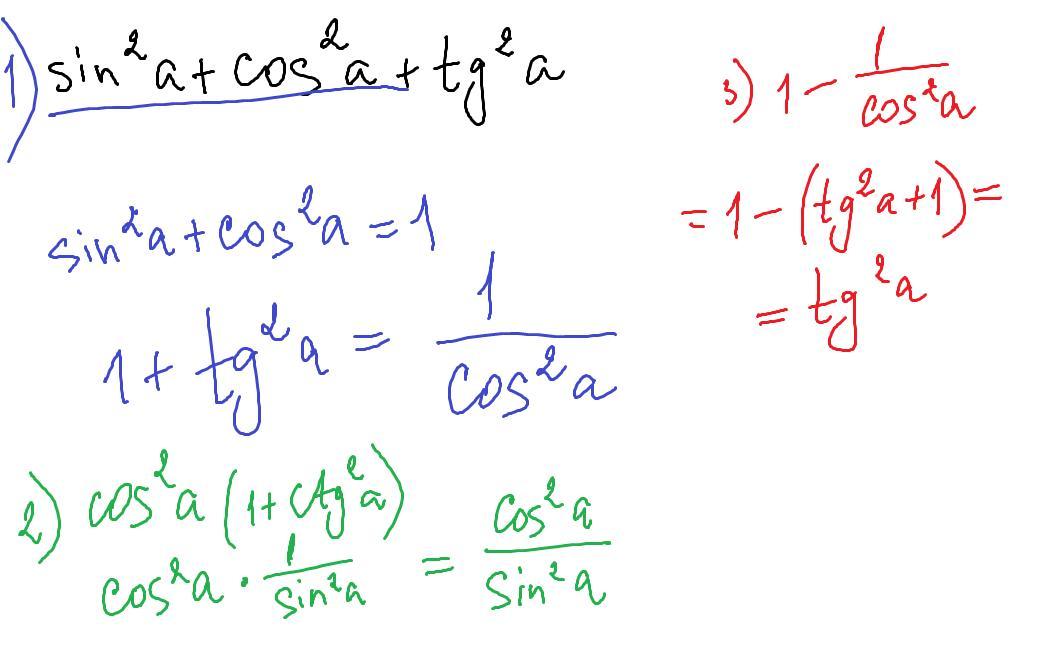 1) sin²a + cos²a + tg²a
sin²a + cos²a = 1
1 + tg²a = 1/cos²a
2) cos²a (1 + ctg²a)
cos²a · 1/sin²a = cos²a/sin²a
3) 1 - 1/cos²a
= 1 - (tg²a + 1) =
= tg²a